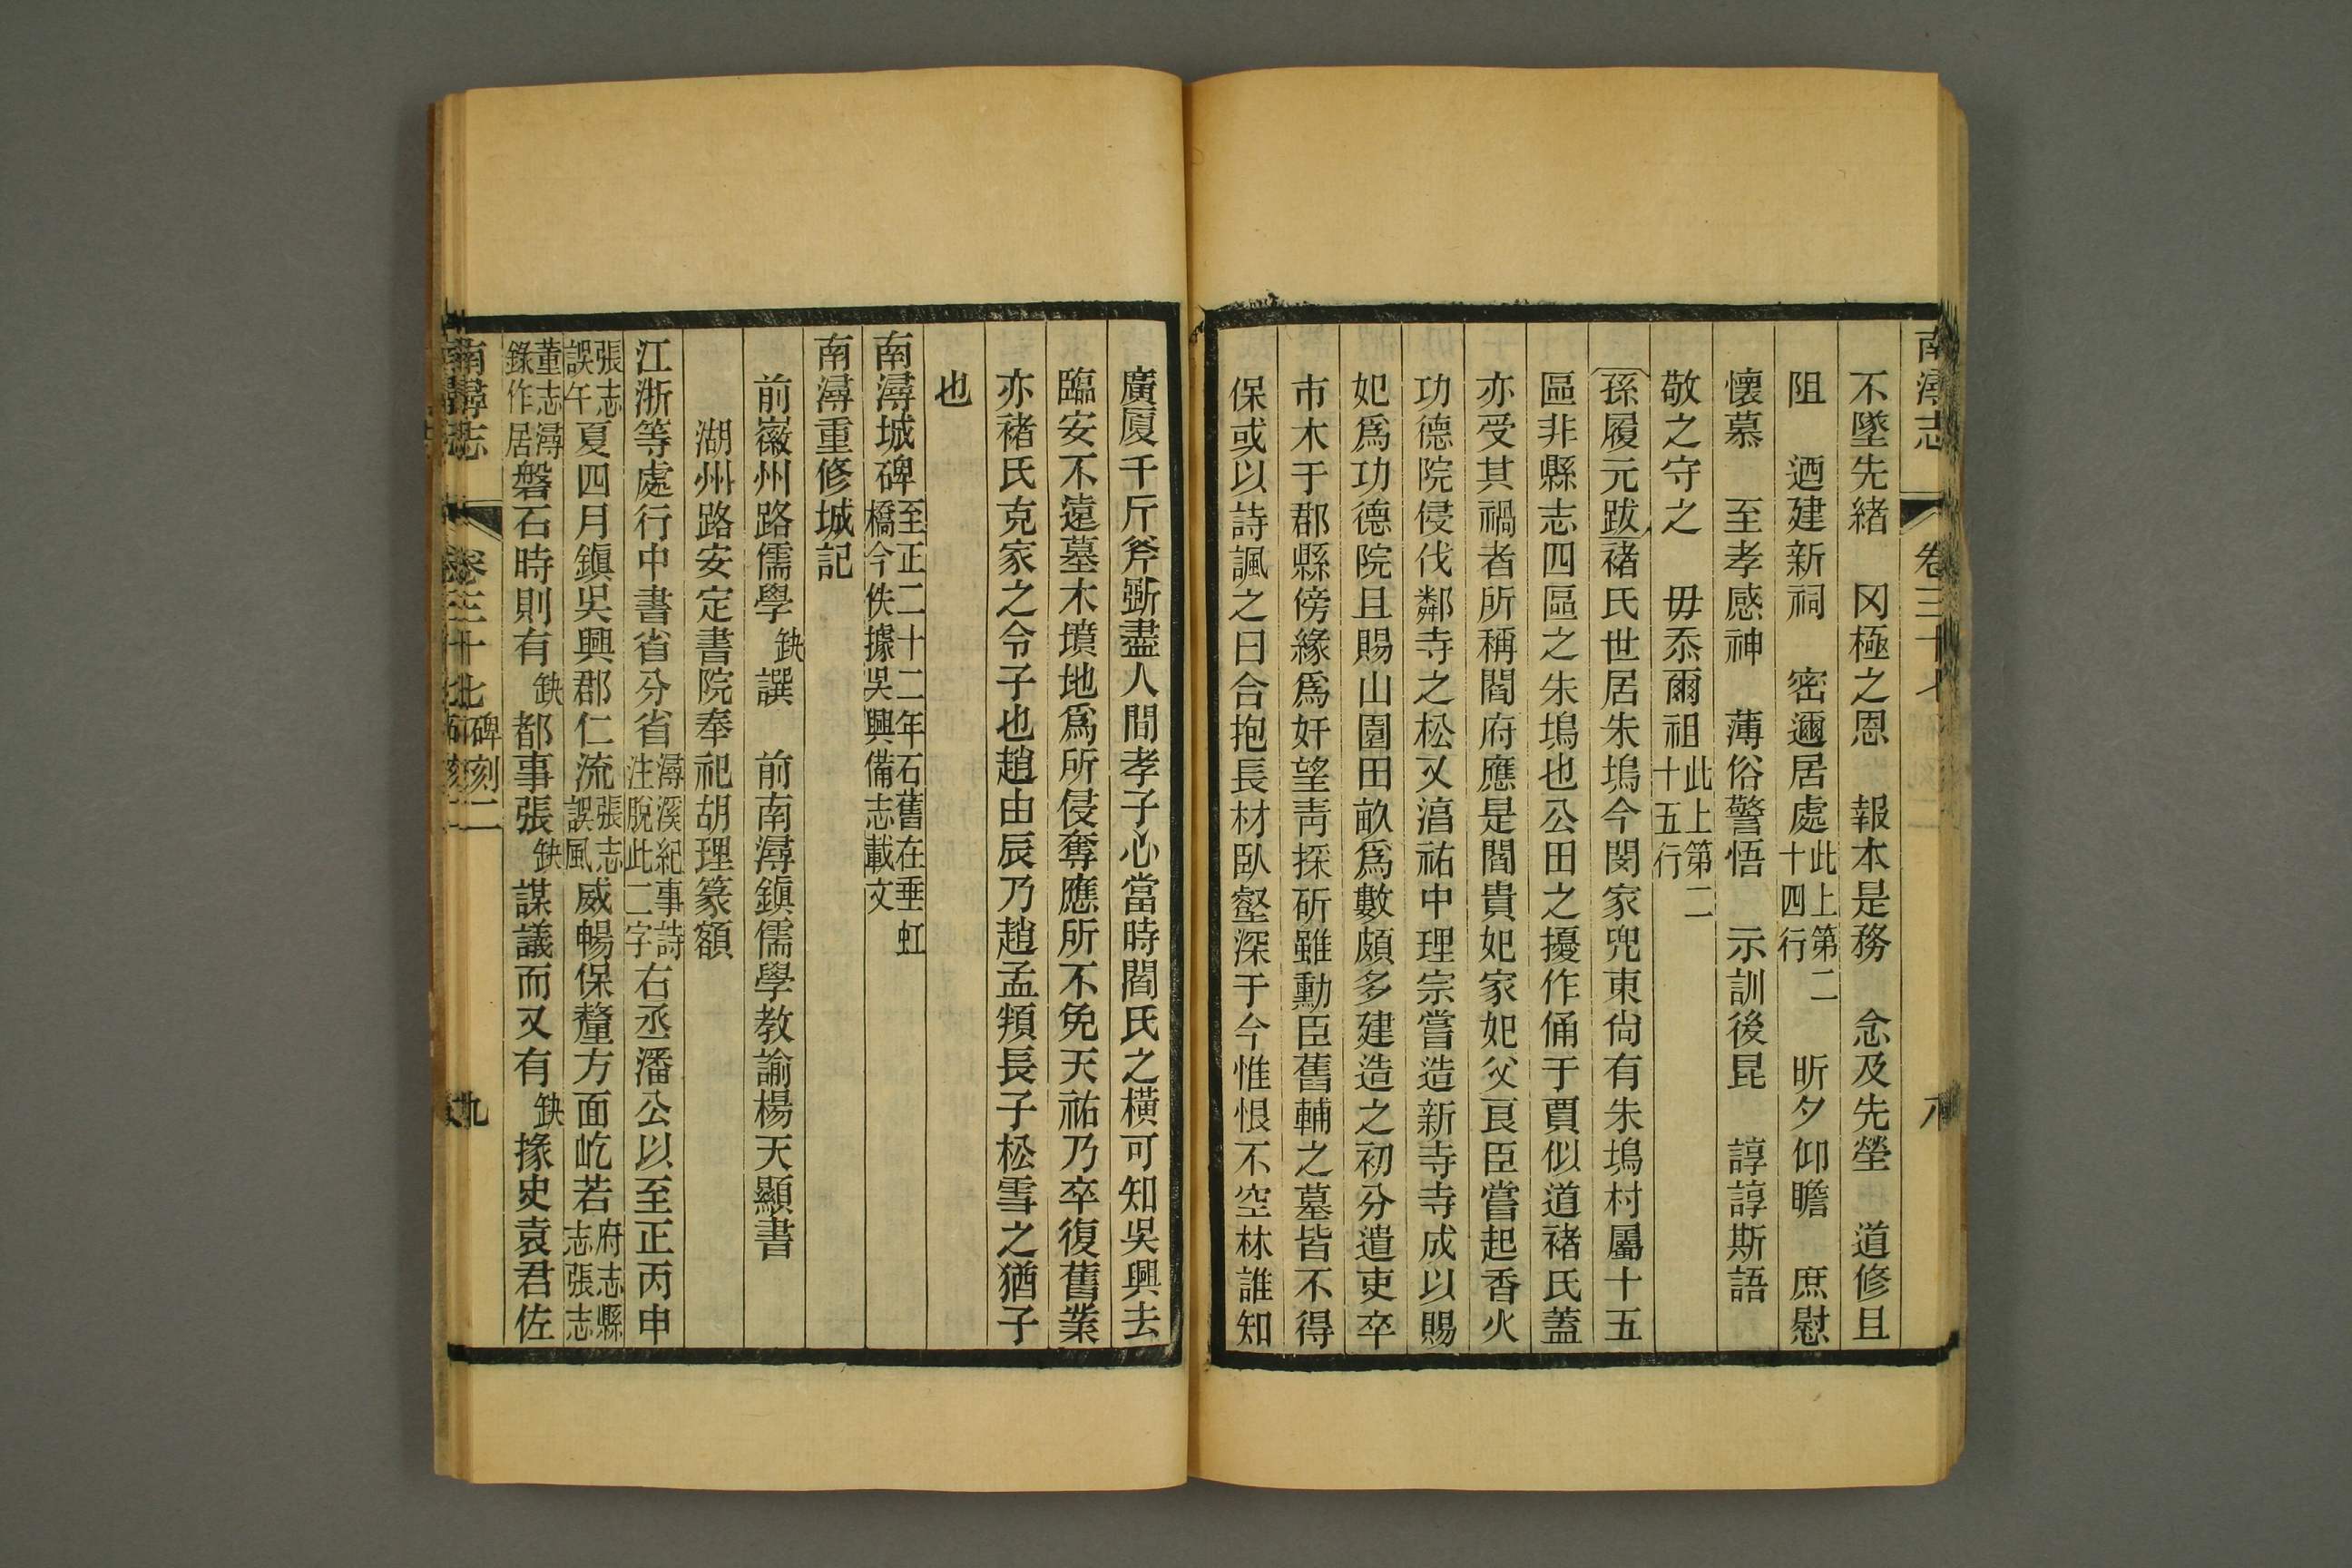 南潯志 卷三十七 八
不墜先緒 罔極之恩 報本是務 念及先塋 道修且
阻 迺建新祠 密邇居處此上第二十四行 昕夕仰瞻 庶慰
懷慕 至孝感神 薄俗警悟 示訓後昆 諄諄斯語
敬之守之 毋忝爾祖此上第二十五行
孫履元跋褚氏世居朱塢今閔家兜東尙有朱塢村屬十五
區非縣志四區之朱塢也公田之擾作俑于賈似道褚氏蓋
亦受其禍者所稱閻府應是閻貴妃家妃父良臣嘗起香火
功德院侵伐鄰寺之松又湻祐中理宗嘗造新寺寺成以賜
妃爲功德院且賜山園田畝爲數頗多建造之初分遣吏卒
市木于郡縣傍緣爲奸望靑採斫雖勳臣舊輔之墓皆不得
保或以詩諷之曰合抱長材臥壑深于今惟恨不空林誰知
廣厦千斤斧斲盡人間孝子心當時閻氏之橫可知吳興去
臨安不遠墓木墳地爲所侵奪應所不免天祐乃卒復舊業
亦褚氏克家之令子也趙由辰乃趙孟頖長子松雪之猶子
也
南潯城碑至正二十二年石舊在垂虹橋今佚據吳興備志載文
南潯重修城記
前徽州路儒學缺譔 前南潯鎭儒學教諭楊天顯書
湖州路安定書院奉祀胡理篆額
江浙等處行中書省分省潯溪紀事詩注脫此二字右丞潘公以至正丙申
張志誤午夏四月鎭吳興郡仁流張志誤風威暢保釐方面屹若府志縣志張志
董志潯錄作居磐石時則有缺都事張缺謀議而又有缺掾史袁君佐
南潯志 卷三十七碑刻二 九